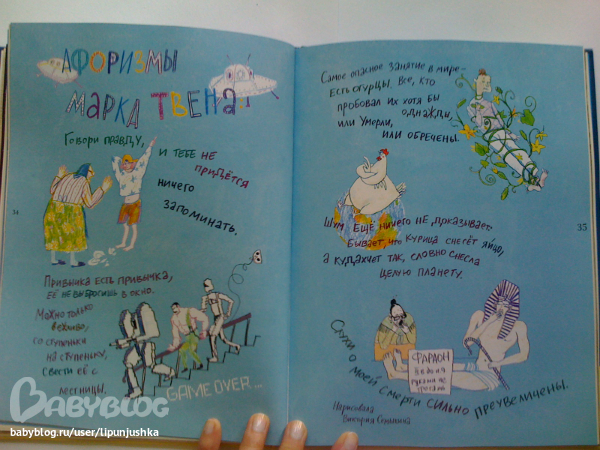 АФОРИЗМЫ
МАРКА ТВЕНА
Говори правду,
и тебе не
придётся
ничего
запоминать.
34
Привычка есть привычка,
её не выбросишь в окно.
Можно только
вежливо,
со ступеньки
на ступеньку,
свести её с
лестницы.
GAME OVER...
Самое опасное занятие в мире –
есть огурцы. Все, кто
пробовал их хотя бы
однажды,
или умерли,
или обречены.
Шум ещё ничего не доказывает.
Бывает, что курица снесёт яйцо,
а кудахчет так, словно снесла
целую планету.
35
ФАРАОН
руками не
трогать
Слухи о моей смерти сильно преувеличены.
Нарисовала
Виктория
BABYBLOG
babyblog.ru/user/lipunjushka